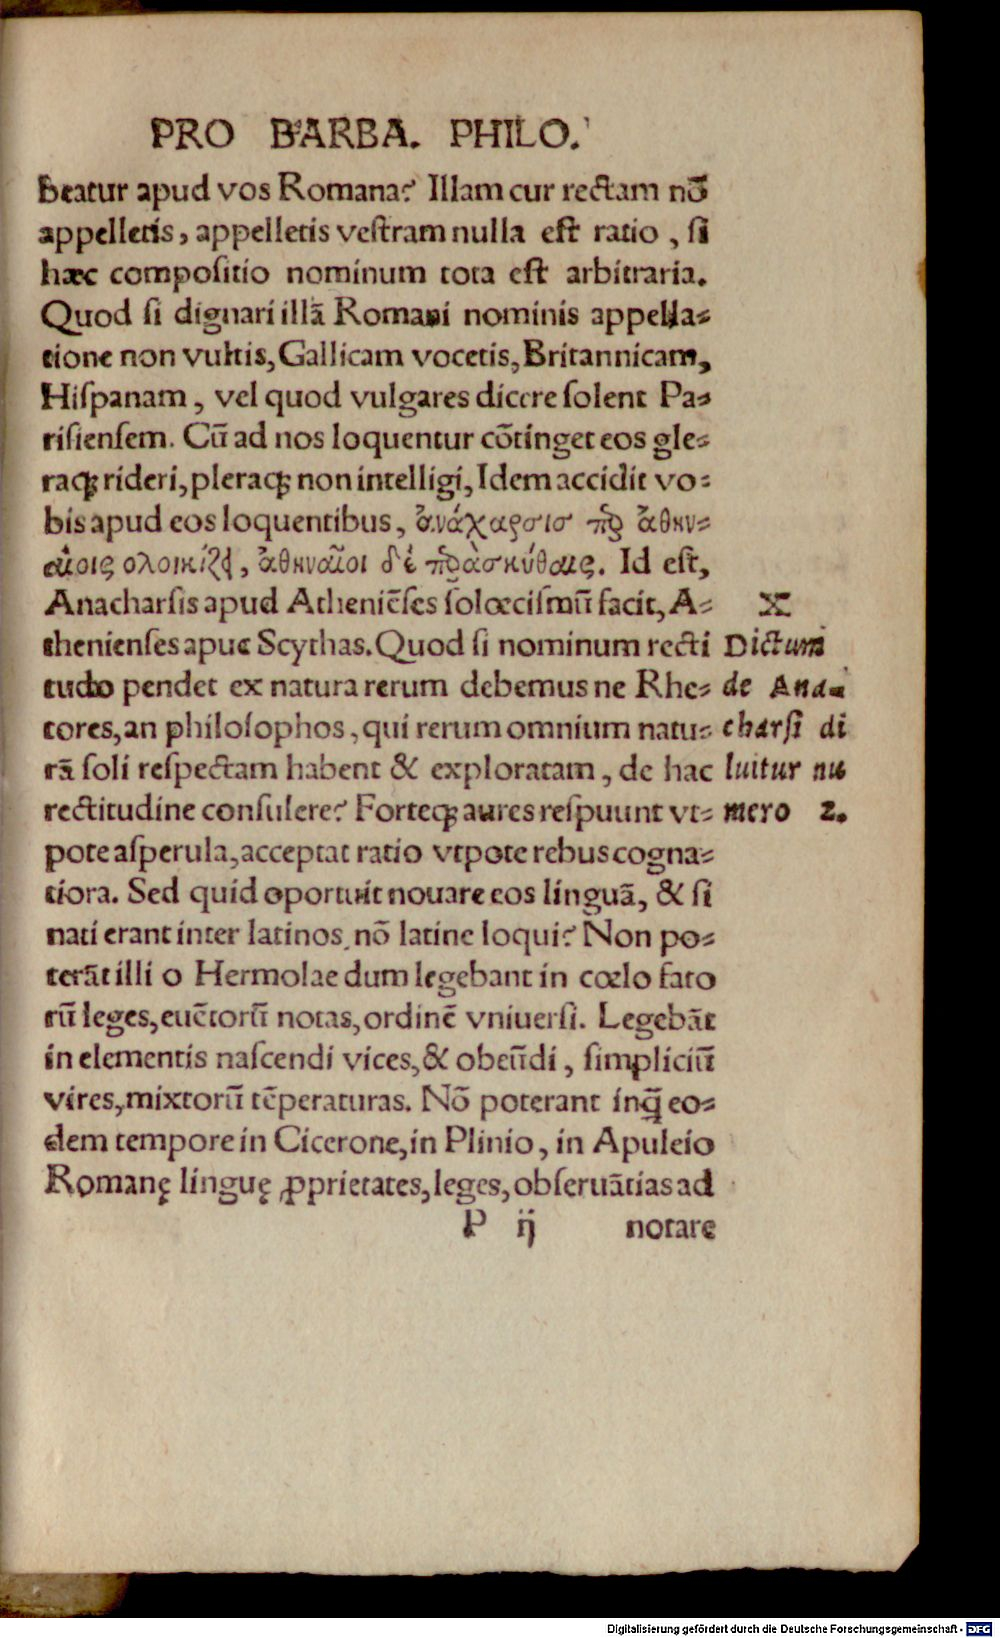 PRO BARBA. PHILO.
beatur apud vos Romana? Illam cur rectam nō
appelletis, appelletis vestram nulla est ratio, si
hæc compositio nominum tota est arbitraria.
Quod si dignari illā Romani nominis appella-
tione non vultis, Gallicam vocetis, Britannicam,
Hispanam, vel quod vulgares dicere solent Pa-
risiensem. Cū ad nos loquentur cōtinget eos ple-
raqꝫ rideri, pleraqꝫ non intelligi, Idem accidit vo-
bis apud eos loquentibus, ἀνάχαρσισ
Id est,
Anacharsis apud Atheniēses solœcismū facit, A-
thenienses apud Scythas. Quod si nominum recti
tudo pendet ex natura rerum debemus ne Rhe-
tores, an philosophos, qui rerum omnium natu-
rā soli respectam habent & exploratam, de hac
rectitudine consulere? Forteqꝫ aures respuunt vt-
pote asperula, acceptat ratio vtpote rebus cogna-
tiora. Sed quid oportuit nouare eos linguā, & si
nati erant inter latinos, nō latine loqui? Non po-
terāt illi o Hermolae dum legebant in cœlo fato
rū leges, euētorū notas, ordinē vniuersi. Legebāt
in elementis nascendi vices, & obeūdi, simpliciū
vires, mixtorū tēperaturas. Nō poterant inq̄ eo-
dem tempore in Cicerone, in Plinio, in Apuleio
Romanę linguę ꝓprietates, leges, obseruātias ad
P ij notare
X
Dictum
de Ana-
charsi di
luitur nu
mero 2.
Digitalisierung gefördert durch die Deutsche Forschungsgemeinschaft - DFG